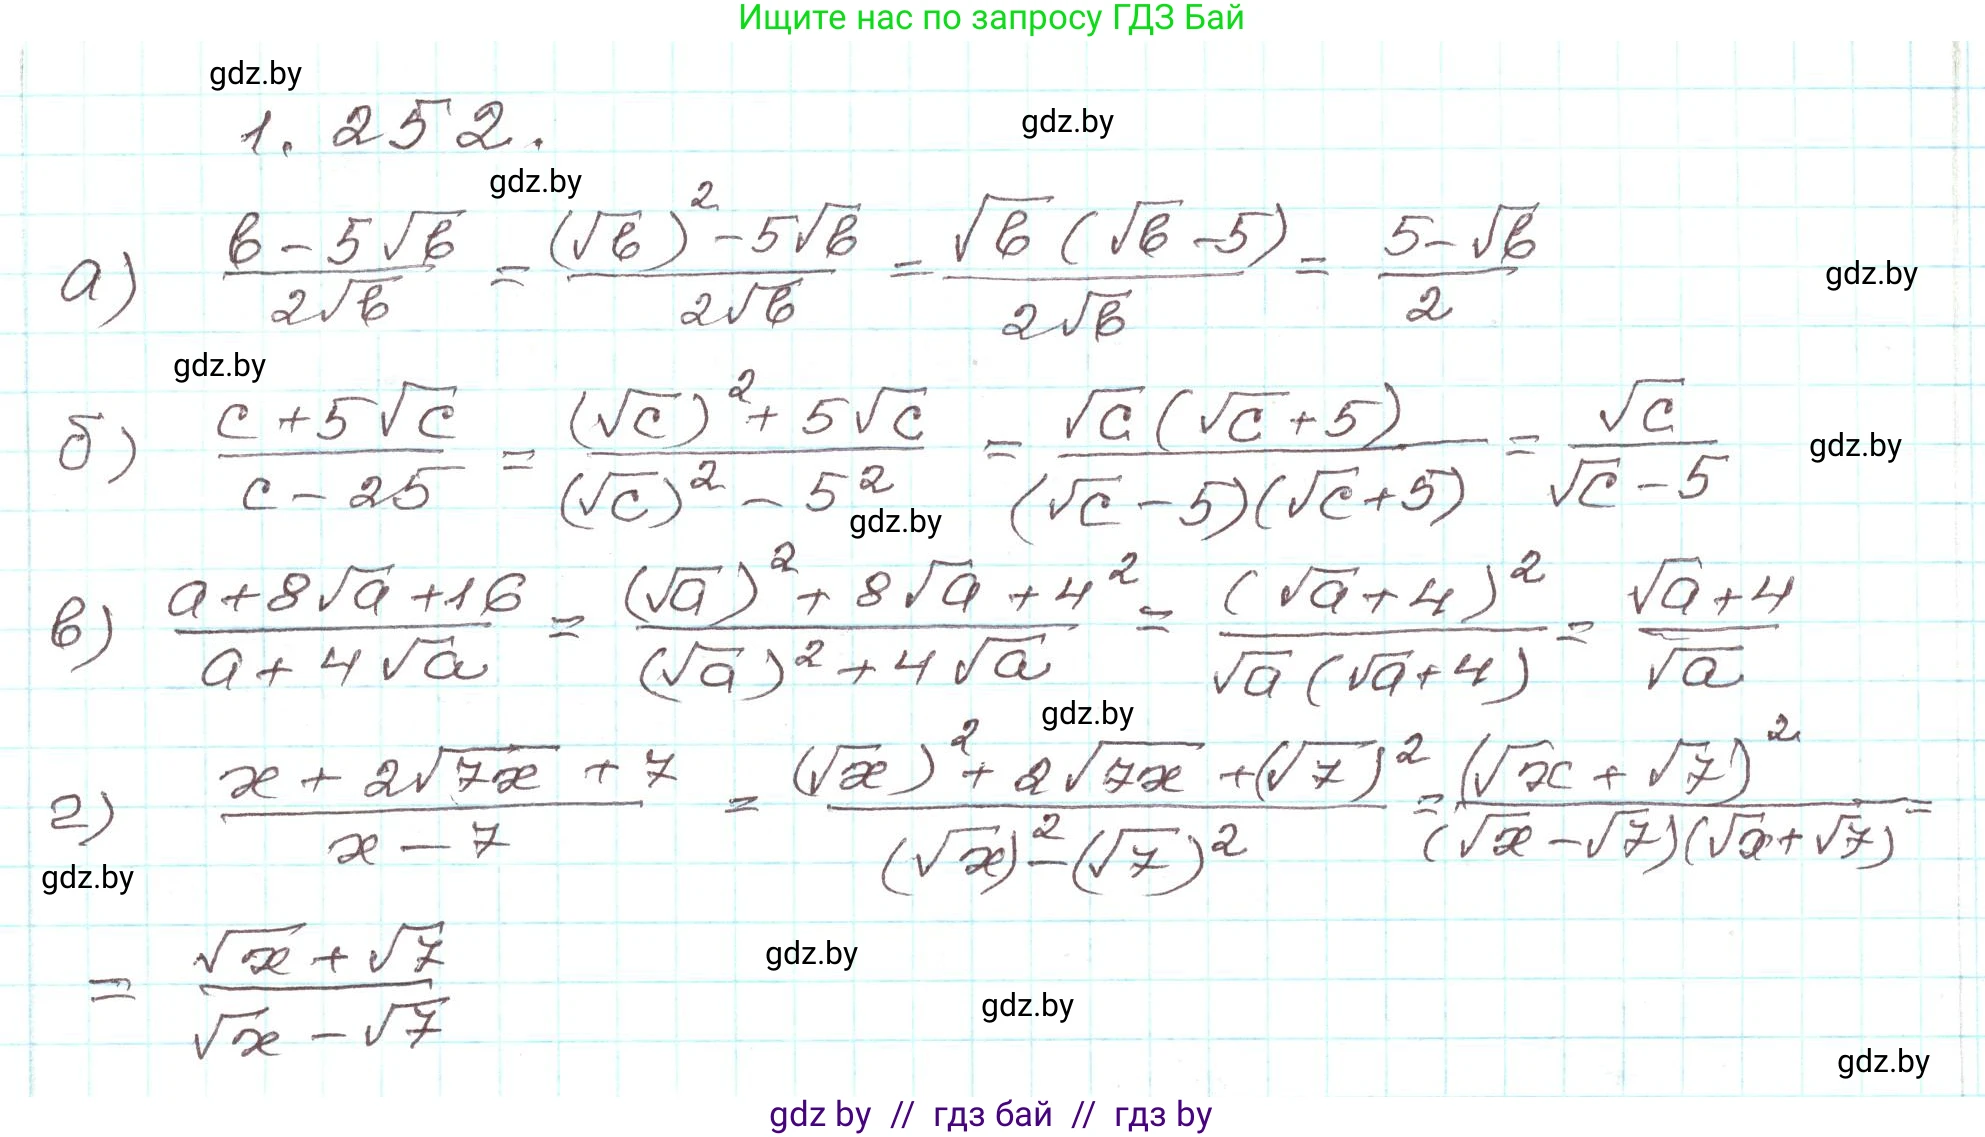 Ищите нас по запросу ГДЗ Бай
gdz.by
1.252.
gdz.by
gdz.by
а) (в - 5√в)/(2√в) = ((√в)² - 5√в)/(2√в) = (√в(√в - 5))/(2√в) = (5 - √в)/2
gdz.by
gdz.by
б) (c + 5√c)/(c - 25) = ((√c)² + 5√c)/((√c)² - 5²) = (√c(√c + 5))/((√c - 5)(√c + 5)) = √c/(√c - 5)
gdz.by
gdz.by
в) (a + 8√a + 16)/(a + 4√a) = ((√a)² + 8√a + 4²)/((√a)² + 4√a) = (√a + 4)²/(√a(√a + 4)) = (√a + 4)/√a
gdz.by
г) (x + 2√7x + 7)/(x - 7) = ((√x)² + 2√7x + (√7)²)/((√x)² - (√7)²) = (√x + √7)²/((√x - √7)(√x + √7)) =
gdz.by
= (√x + √7)/(√x - √7)
gdz.by
gdz.by
gdz.by
gdz by // гдз бай // гдз by